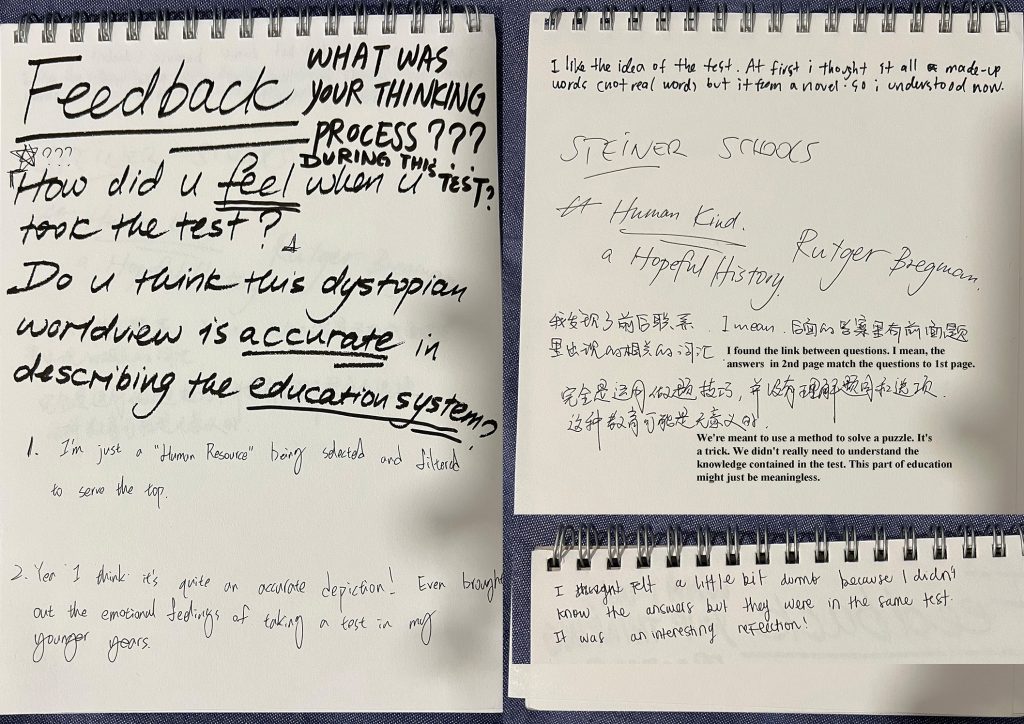 Feedback
WHAT WAS
YOUR THINKING
PROCESS???
DURING THIS TEST?
???
How did u feel when u
took the test?
Do u think this dystopian
worldview is accurate in
describing the education system?
1. I'm just a "Human Resource" being selected and filtered
to serve the top.
2. Yes I think it's quite an accurate depiction! Even brought
out the emotional feelings of taking a test in my
younger years.
I like the idea of the test. At first i thought it all made-up
words (not real words but it from a novel. So i understood now.
STEINER SCHOOLS
Human Kind.
a Hopeful History
Rutger Bregman.
我发现了前后联系. I mean. 后面的答案里有前面题
里出现的相关的词汇
I found the link between questions. I mean, the
answers in 2nd page match the questions to 1st page.
完全是运用做题技巧, 并没有理解题目和选项.
这种教育可能是无意义的.
We're meant to use a method to solve a puzzle. It's
a trick. We didn't really need to understand the
knowledge contained in the test. This part of education
might just be meaningless.
I thought felt a little bit dumb because I didn't
know the answers but they were in the same test.
It was an interesting reflection!